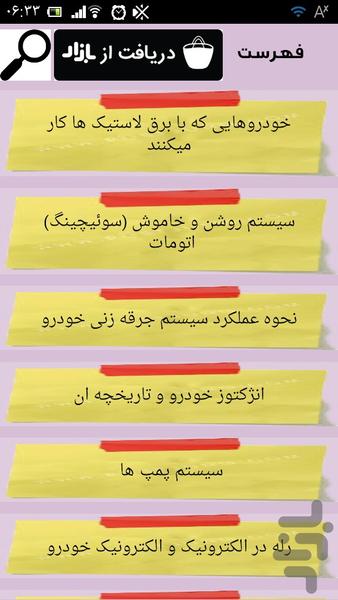 ۰۶:۳۳
فهرست
دریافت از بازار
خودروهایی که با برق لاستیک ها کار
میکنند
سیستم روشن و خاموش (سوئیچینگ)
اتومات
نحوه عملکرد سیستم جرقه زنی خودرو
انژکتوز خودرو و تاریخچه ان
سیستم پمپ ها
رله در الکترونیک و الکترونیک خودرو
بازار